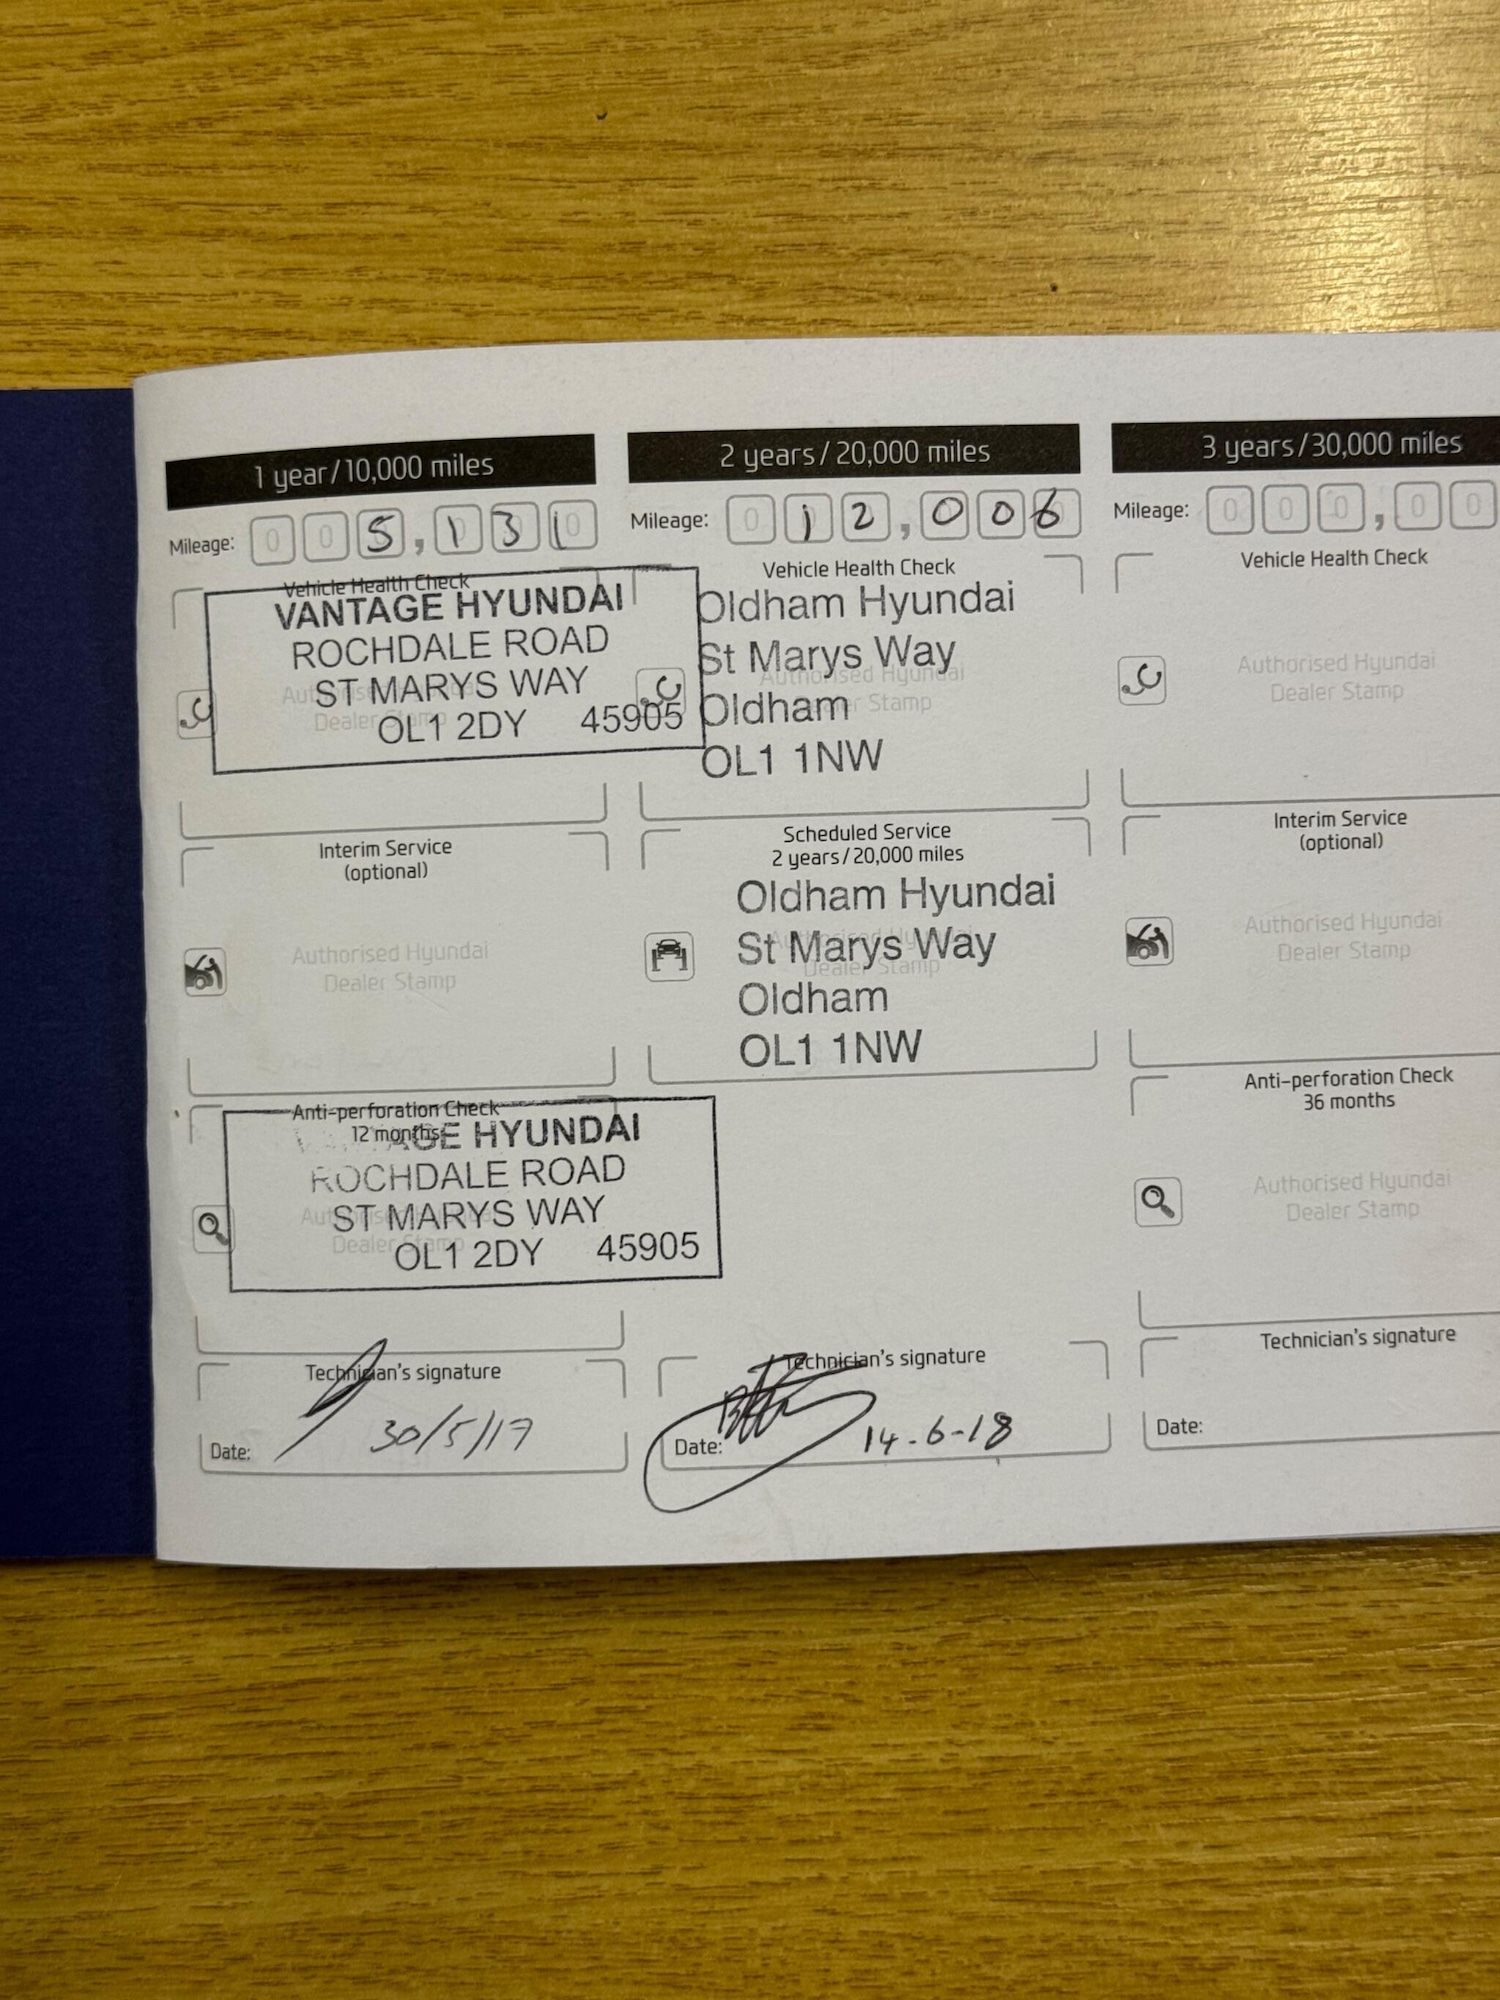 1 year/10,000 miles
Mileage: 0 0 5, 1 3 1
Vehicle Health Check
VANTAGE HYUNDAI
ROCHDALE ROAD
ST MARYS WAY
OL1 2DY 45905
Authorised Hyundai
Dealer Stamp
Interim Service
(optional)
Authorised Hyundai
Dealer Stamp
Anti-perforation Check
12 months
HYUNDAI
ROCHDALE ROAD
ST MARYS WAY
OL1 2DY 45905
Authorised Hyundai
Dealer Stamp
Technician's signature
Date: 30/5/17
2 years/20,000 miles
Mileage: 0 1 2, 0 0 6
Vehicle Health Check
Oldham Hyundai
St Marys Way
Oldham
OL1 1NW
Authorised Hyundai
Dealer Stamp
Scheduled Service
2 years/20,000 miles
Oldham Hyundai
St Marys Way
Oldham
OL1 1NW
Authorised Hyundai
Dealer Stamp
Technician's signature
Date: 14-6-18
3 years/30,000 miles
Mileage: 0 0 0, 0 0
Vehicle Health Check
Authorised Hyundai
Dealer Stamp
Interim Service
(optional)
Authorised Hyundai
Dealer Stamp
Anti-perforation Check
36 months
Authorised Hyundai
Dealer Stamp
Technician's signature
Date: